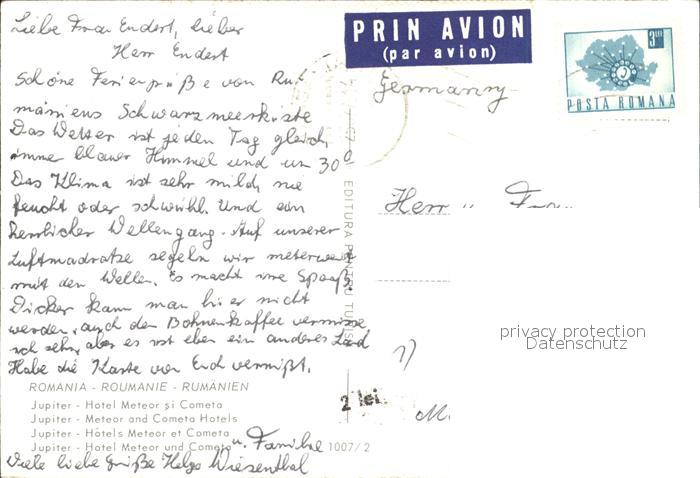 Liebe Frau Endert, lieber
Herr Endert
Schöne Feriengrüße von Ru
mäniens Schwarzmeerküste
Das Wetter ist jeden Tag gleich,
imme blauer Himmel und um 30°
Das Klima ist sehr mild, nie
feucht oder schwühl. Und ein
herrlicher Wellengang. Auf unserer
Luftmadratze segeln wir meterweit
mit den Wellen. Es macht irre Spaaß.
Dicker kann man hier nicht
werden, auch den Bohnenkaffee vermisse
ich sehr, aber es ist eben ein anderes Land
Habe die Karte von Euch vermißt.
ROMANIA - ROUMANIE - RUMÄNIEN
Jupiter - Hotel Meteor și Cometa
Jupiter - Meteor and Cometa Hotels
Jupiter - Hôtels Meteor et Cometa
Jupiter - Hotel Meteor und Cometa
1007/2
Viele liebe Grüße Helga Wiesenthal
u. Familie
PRIN AVION
(par avion)
3 LEI
POSTA ROMANA
Germanny
EDITURA PENTRU TURISM
Herr u Frau
1)
2 lei
M
privacy protection
Datenschutz